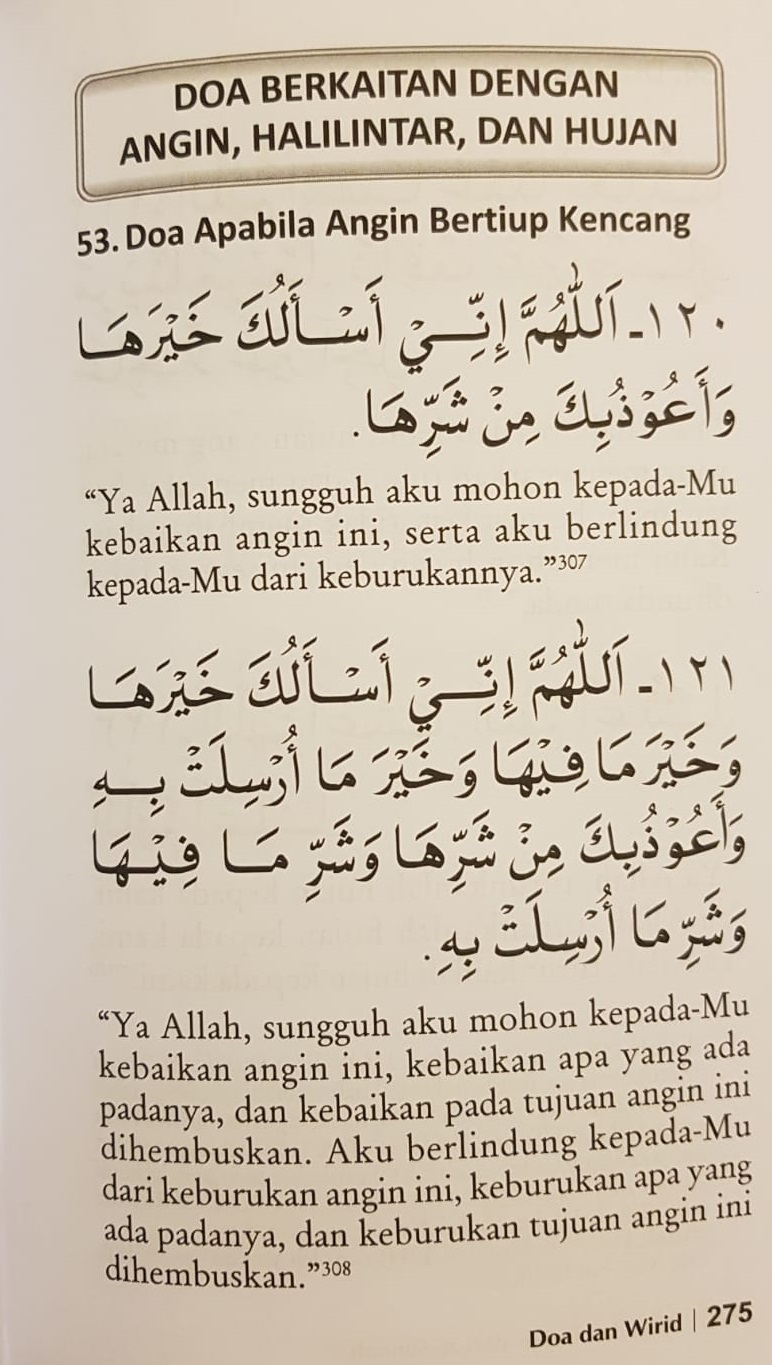 DOA BERKAITAN DENGAN
ANGIN, HALILINTAR, DAN HUJAN
53. Doa Apabila Angin Bertiup Kencang
١٢٠ـ اَللّٰهُمَّ إِنِّـــيْ أَسْـأَلُكَ خَيْرَهَـا
وَأَعُوْذُبِكَ مِنْ شَرِّهَا.
“Ya Allah, sungguh aku mohon kepada-Mu
kebaikan angin ini, serta aku berlindung
kepada-Mu dari keburukannya.”307
١٢١ـ اَللّٰهُمَّ إِنِّـــيْ أَسْـأَلُكَ خَيْرَهَـا
وَخَيْرَ مَا فِيْهَا وَخَيْرَ مَا أُرْسِلَتْ بِـــهِ
وَأَعُوْذُبِكَ مِنْ شَرِّهَا وَشَرِّ مَـا فِيْـهَا
وَشَرِّ مَا أُرْسِلَتْ بِهِ.
“Ya Allah, sungguh aku mohon kepada-Mu
kebaikan angin ini, kebaikan apa yang ada
padanya, dan kebaikan pada tujuan angin ini
dihembuskan. Aku berlindung kepada-Mu
dari keburukan angin ini, keburukan apa yang
ada padanya, dan keburukan tujuan angin ini
dihembuskan.”308
Doa dan Wirid | 275